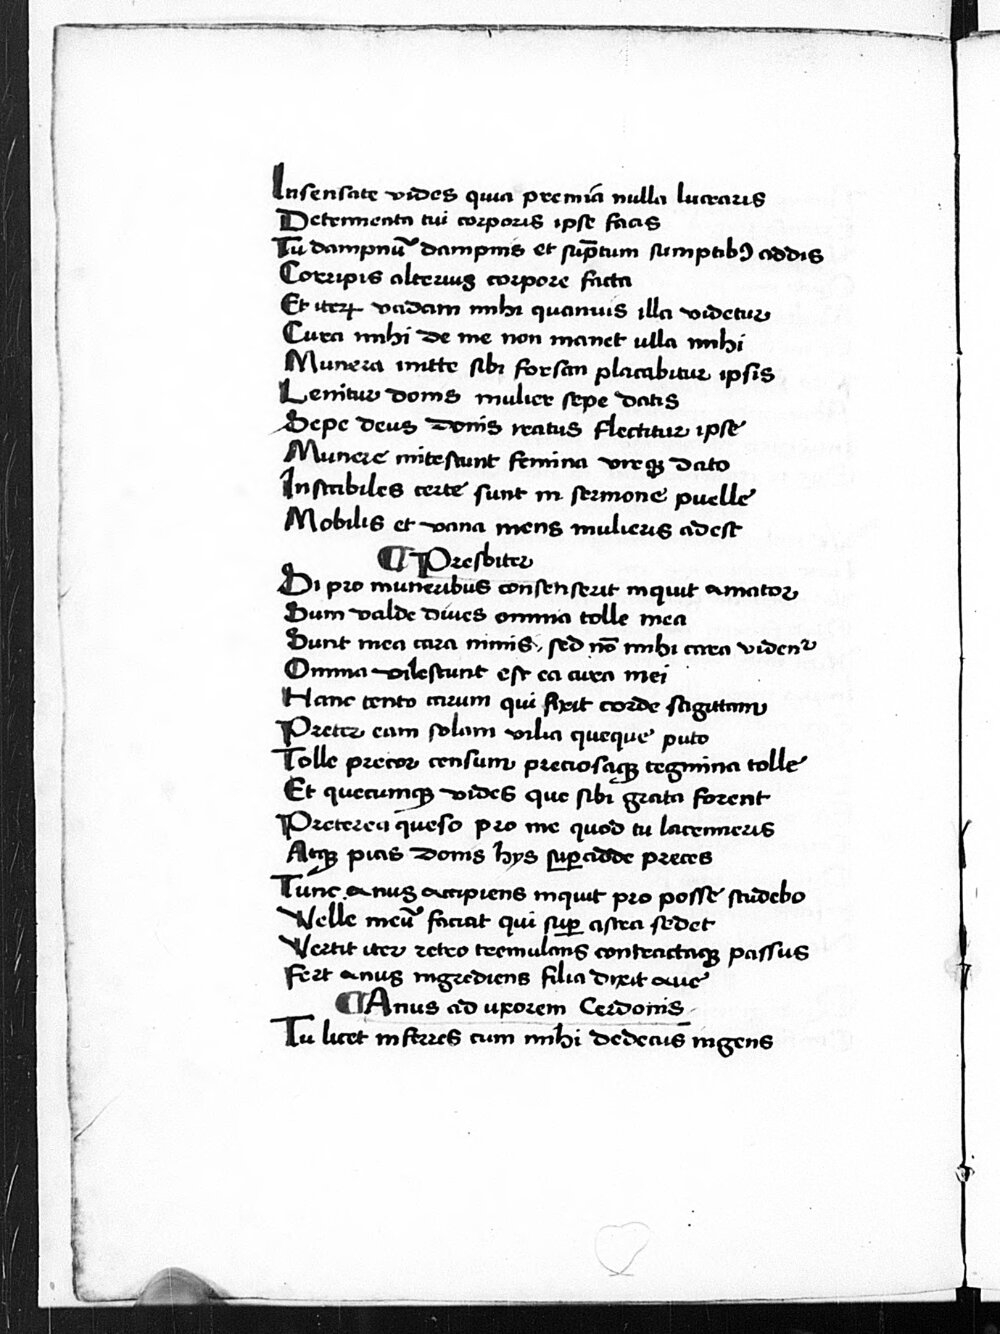 Insensate vides quia premiā nulla lucraris
Detrimenta tui corporis ipse facis
Tu dampnū dampnis et sūptum sumptibꝰ addis
Corripis alterius corpore facta
Et iterꝝ vadam mihi quamuis illa videtur
Cura mihi de me non manet ulla mihi
Munera mitte sibi forsan placabitur ipsis
Lenitur donis mulier sepe datis
Sepe deus donis reatus flectitur ipse
Munere mitescunt femina virqꝫ dato
Instabiles certe sunt in sermone puelle
Mobilis et vana mens mulieris adest
¶ Presbiter
Si pro muneribus consenserit inquit amator
Sum valde diues omnia tolle mea
Sunt mea cara nimis, sed nō mihi cara videnr̄
Omnia vilescunt est ea cura mei
Hanc tento carum qui fixit corde sagittam
Preter eam solam vilia queque puto
Tolle precor censum preciosaqꝫ tegmina tolle
Et quecumqꝫ vides que sibi grata forent
Preterea queso pro me quod tu
Atqꝫ pias donis hys suꝑadde preces
Tunc anus accipiens inquit pro posse studebo
Velle meū faciat qui suꝑ astra sedet
Vertit iter retro tremulans contractaqꝫ passus
Fert anus ingrediens filia dixit aue
¶ Anus ad uxorem Cerdonis
Tu licet inferres cum mihi dedecus ingens